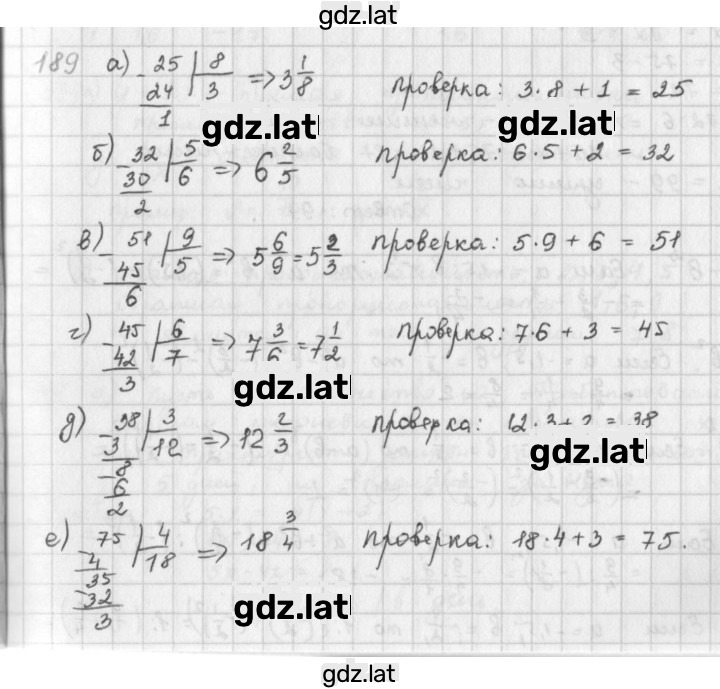 gdz.lat
189 а) 25 | 8 => 3 1/8 проверка: 3·8+1 = 25
24 3
1
gdz.lat gdz.lat
б) 32 | 5 => 6 2/5 проверка: 6·5+2 = 32
30 6
2
в) 51 | 9 => 5 6/9 = 5 2/3 проверка: 5·9+6 = 51
45 5
6
г) 45 | 6 => 7 3/6 = 7 1/2 проверка: 7·6+3 = 45
42 7
3
gdz.lat
д) 38 | 3 => 12 2/3 проверка: 12·3+2 = 38
3 12
8
6
2
gdz.lat
е) 75 | 4 => 18 3/4 проверка: 18·4+3 = 75.
4 18
35
32
3
gdz.lat
gdz.lat